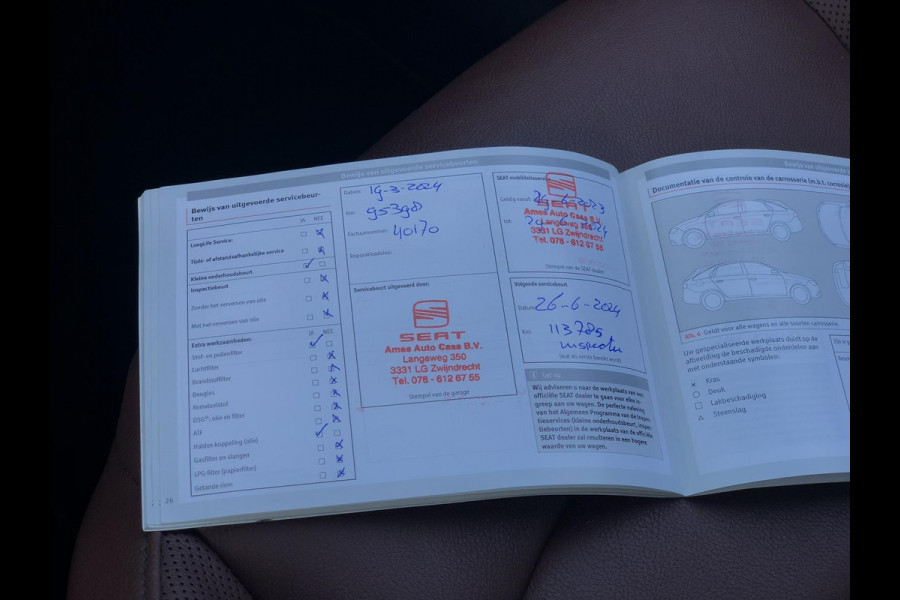 Bewijs van uitgevoerde servicebeurten
Bewijs van uitgevoerde servicebeur-
ten
JA NEE
LongLife Service:
Tijds- of afstandsafhankelijke service
Kleine onderhoudsbeurt
Inspectiebeurt
Zonder het verversen van olie
Met het verversen van olie
Extra werkzaamheden:
JA NEE
Stof- en pollenfilter
Luchtfilter
Brandstoffilter
Bougies
Remvloeistof
DSG®: olie en filter
ATF
Haldex-koppeling (olie)
Gasfilter en slangen
LPG-filter (papierfilter)
Getande riem
26
Datum:
19-3-2024
Km:
95398
Factuurnummer:
40170
Servicebeurt uitgevoerd door:
SEAT
Ames Auto Casa B.V.
Langeweg 350
3331 LG Zwijndrecht
Tel. 078 - 612 67 55
Stempel van de garage
SEAT mobiliteitsservice
Geldig vanaf:
tot:
SEAT
Ames Auto Casa B.V.
Langeweg 350
3331 LG Zwijndrecht
Tel. 078 - 612 67 55
Stempel van de SEAT dealer
Volgende servicebeurt
Datum:
26-6-2024
Km:
113785
(wat als eerste bereikt wordt)
Let op
Wij adviseren u naar de werkplaats van een
officiële SEAT dealer te gaan voor elke in-
greep aan uw wagen. De perfecte naleving
van het Algemeen Programma van de Inspec-
tieservices (kleine onderhoudsbeurt, inspec-
tiebeurten) in de werkplaats van de officiële
SEAT dealer zal resulteren in een hogere
waarde van uw wagen.
Documentatie van de controle van de carrosserie (m.b.t. corrosie)
Afb. 4 Geldt voor alle wagens en alle soorten carrosserie.
Uw gespecialiseerde werkplaats duidt op de
afbeelding de beschadigde onderdelen aan
met onderstaande symbolen.
× Kras
○ Deuk
□ Lakbeschadiging
△ Steenslag